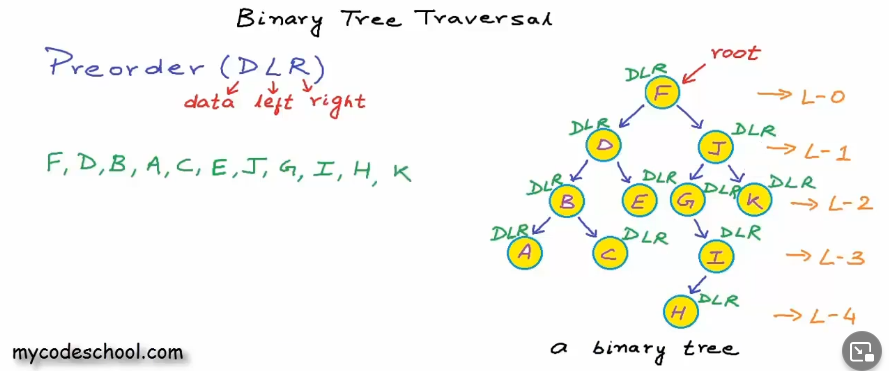 Binary Tree Traversal
Preorder (DLR)
data left right
F, D, B, A, C, E, J, G, I, H, K
root
DLR
F
→ L-0
DLR
D
J
DLR
→ L-1
DLR
B
DLR
E
G
DLR
K
DLR
→ L-2
DLR
A
C
DLR
I
DLR
→ L-3
H
DLR
→ L-4
a binary tree
mycodeschool.com